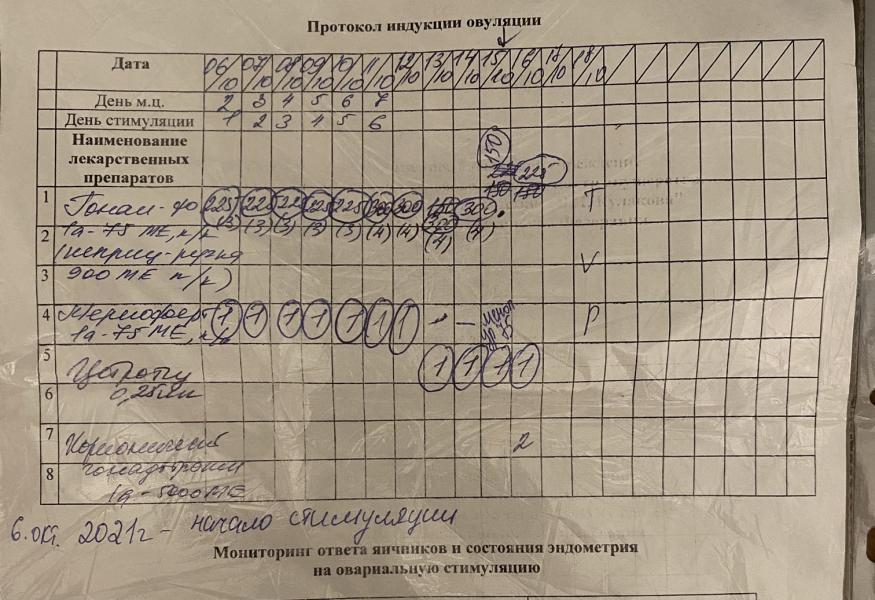 Протокол индукции овуляции
Дата 06/10 07/10 08/10 09/10 10/10 11/10 12/10 13/10 14/10 15/10 16/10 17/10 18/10
День м.ц. 2 3 4 5 6 7
День стимуляции 1 2 3 4 5 6
Наименование
лекарственных
препаратов
150
225
1 Гонал-ф 225 225 225 225 225 300 300 150 300 Т
1а-75 МЕ, п/к (3) (3) (3) (3) (3) (4) (4) 300 (4) (4)
2 (шприц-ручка V
3 900 МЕ п/к)
4 Мериоферт 1 1 1 1 1 1 1 - — Р
1а-75 МЕ, п/к
5 Цетротид 1 1 1 1
6 0,25
7 Хорионический 2
гонадотропин
8 1а-5000 МЕ
6.окт. 2021г - начало стимуляции
Мониторинг ответа яичников и состояния эндометрия
на овариальную стимуляцию